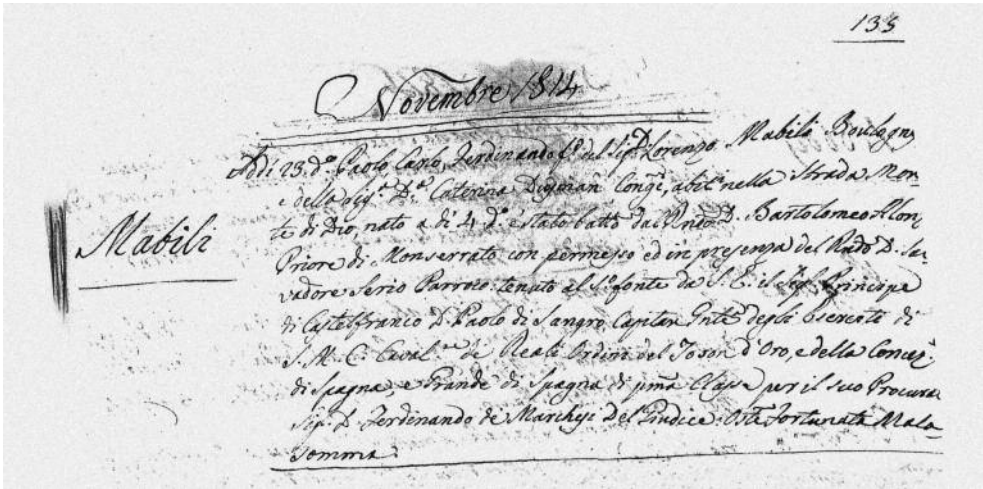 135
Novembre 1814
Mabili
Addi 23. d.º Paolo Carlo, Ferdinando f.º del Sig.r D. Lorenzo Mabili Boulogny
e della Sig.ª D.ª Caterina Cong.i, abit.i nella Strada Mon-
te di Dio, nato a di 4 d.º è stato batt.º dal D. Bartolomeo
Priore di Monserrato con permesso ed in presenza del Rndo D. Sa-
vadore Serio Parroco: tenuto al S. fonte da S. E. il Sig.r Principe
di Castelfranco D. Paolo di Sangro, Capitan Gnle degli Eserciti di
S. M. C. Caval.re de Reali Ordini del Toson d'Oro, e della Concez.
di Spagna, e Grande di Spagna di pma Classe per il suo Procura
Sig. D. Ferdinando de Marchesi Del Giudice. Ost.e Fortunata Mala-
somma.